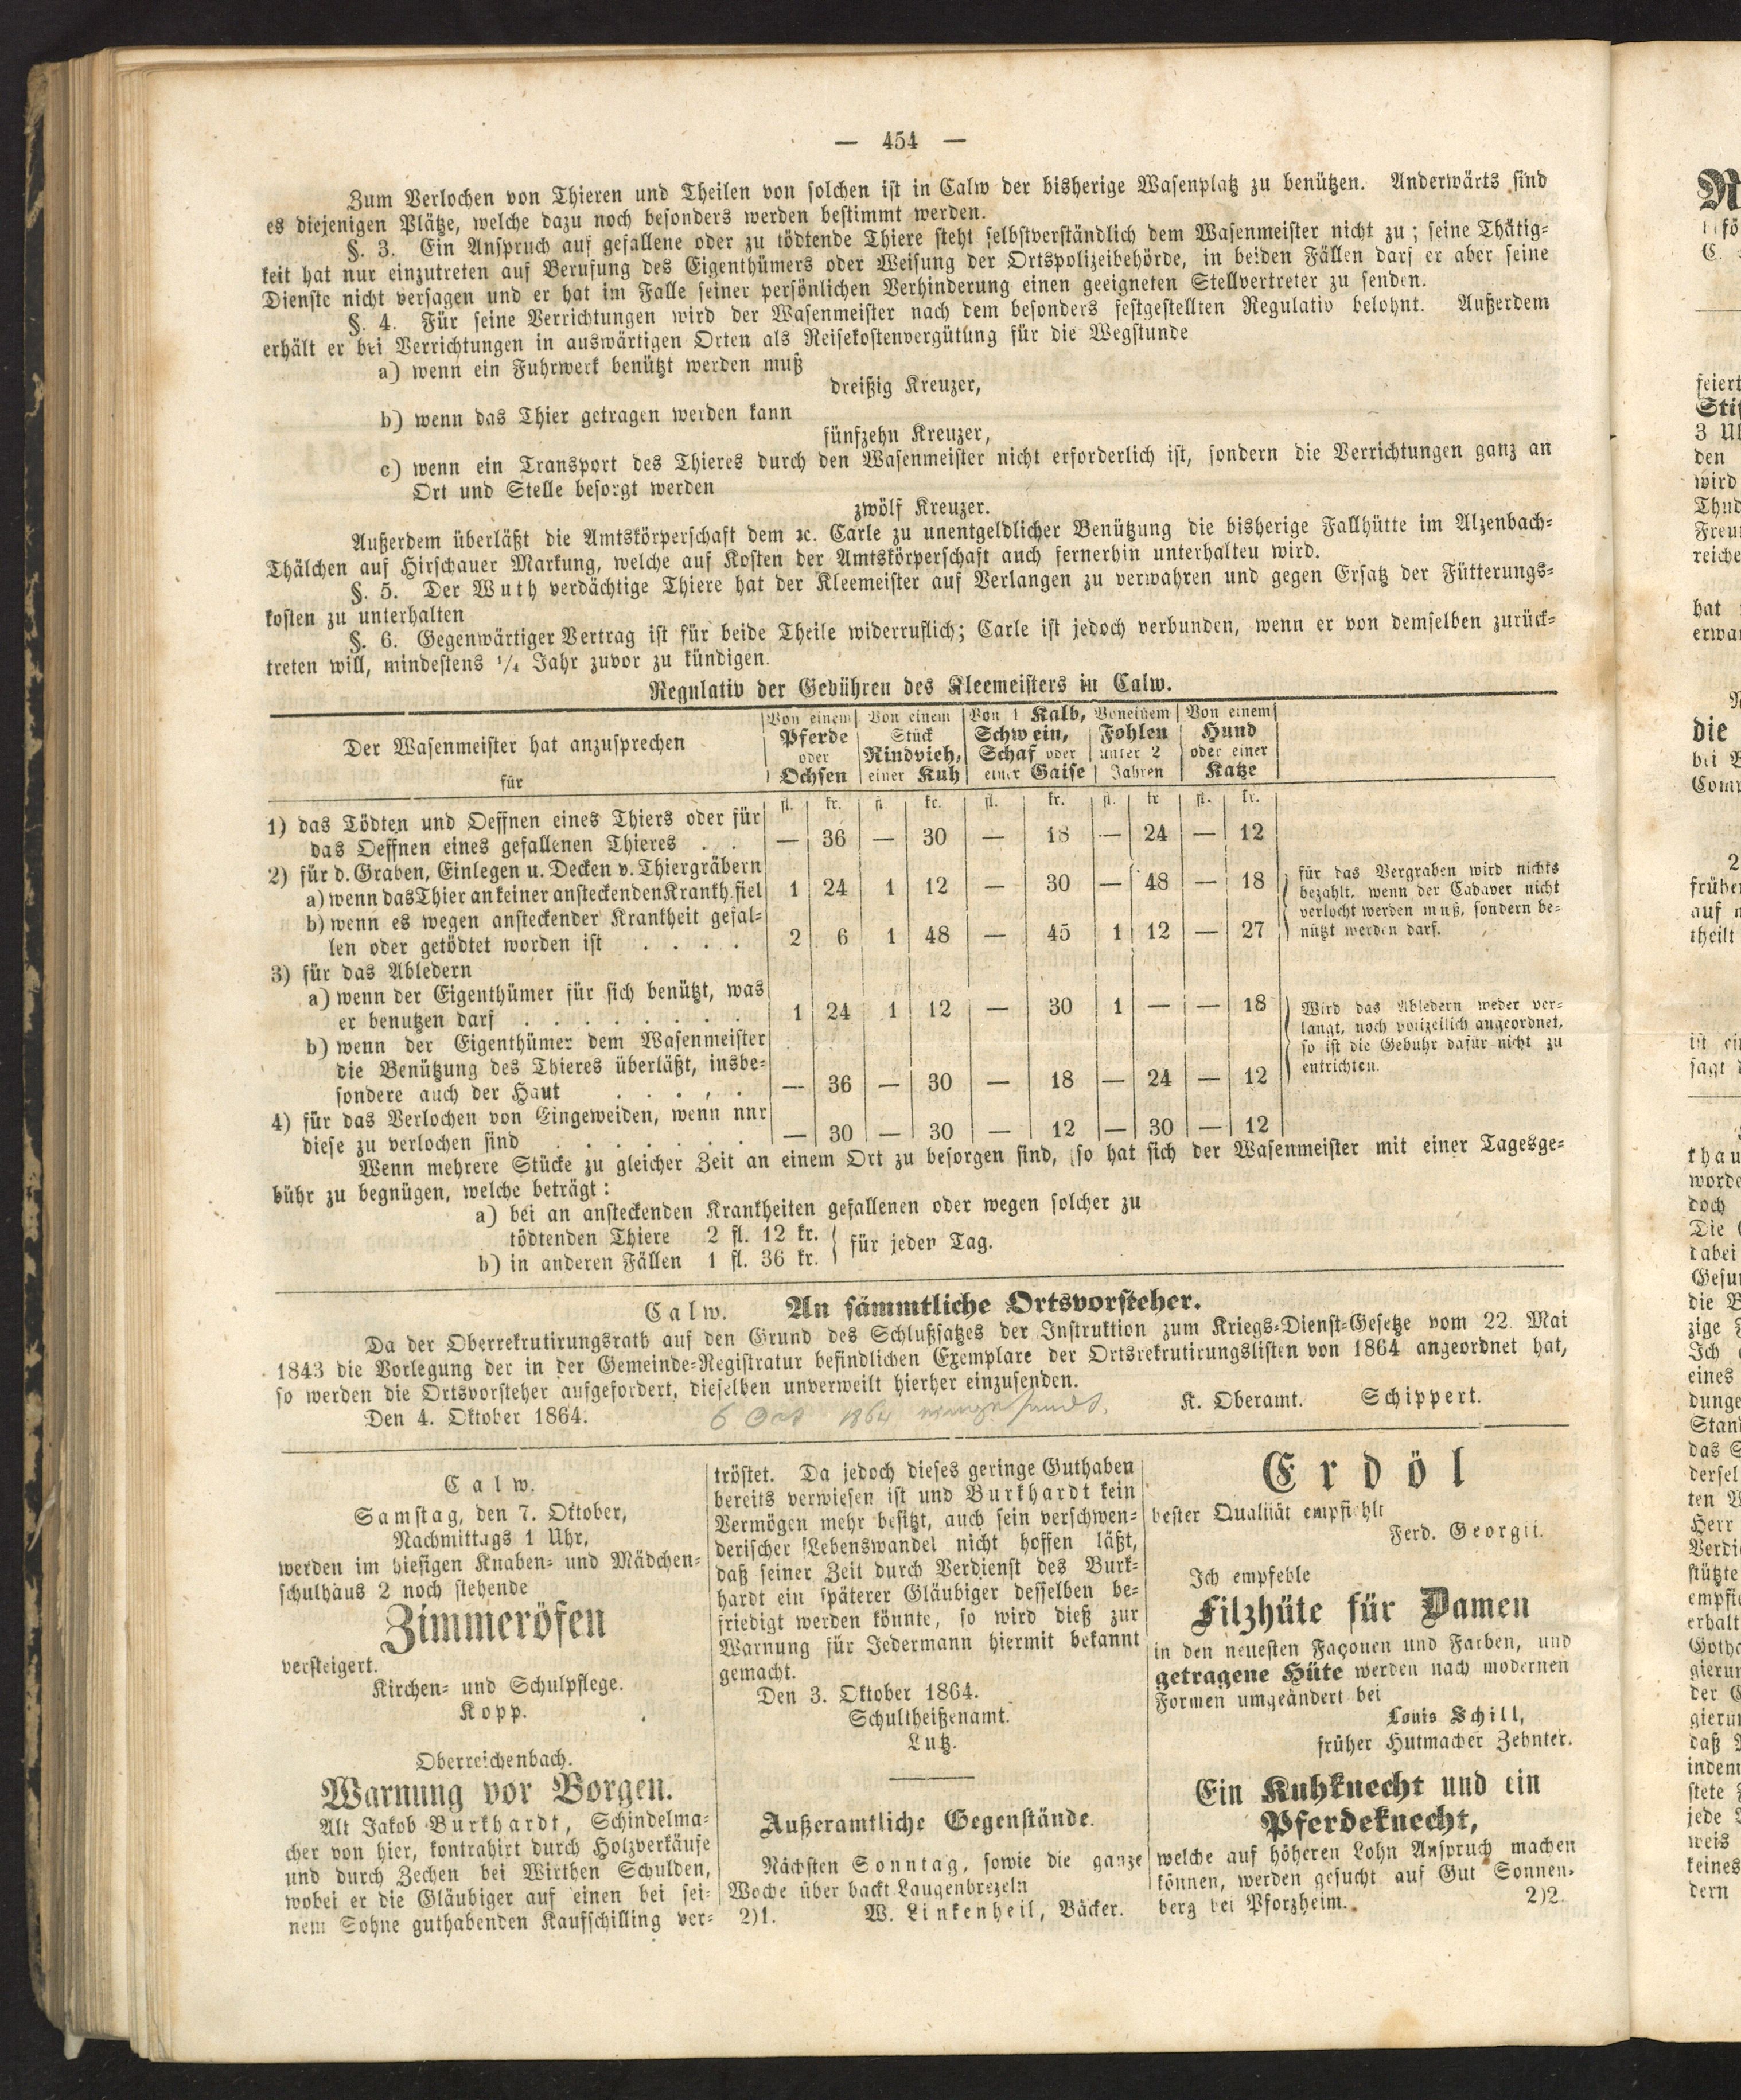 — 454 —
Zum Verlochen von Thieren und Theilen von solchen ist in Calw der bisherige Wasenplatz zu benützen. Anderwärts sind
es diejenigen Plätze, welche dazu noch besonders werden bestimmt werden.
§. 3. Ein Anspruch auf gefallene oder zu tödtende Thiere steht selbstverständlich dem Wasenmeister nicht zu; seine Thätig-
keit hat nur einzutreten auf Berufung des Eigenthümers oder Weisung der Ortspolizeibehörde, in beiden Fällen darf er aber seine
Dienste nicht versagen und er hat im Falle seiner persönlichen Verhinderung einen geeigneten Stellvertreter zu senden.
§. 4. Für seine Verrichtungen wird der Wasenmeister nach dem besonders festgestellten Regulativ belohnt. Außerdem
erhält er bei Verrichtungen in auswärtigen Orten als Reisekostenvergütung für die Wegstunde
a) wenn ein Fuhrwerk benützt werden muß
dreißig Kreuzer,
b) wenn das Thier getragen werden kann
fünfzehn Kreuzer,
c) wenn ein Transport des Thieres durch den Wasenmeister nicht erforderlich ist, sondern die Verrichtungen ganz an
Ort und Stelle besorgt werden
zwölf Kreuzer.
Außerdem überläßt die Amtskörperschaft dem ꝛc. Carle zu unentgeldlicher Benützung die bisherige Fallhütte im Alzenbach-
Thälchen auf Hirschauer Markung, welche auf Kosten der Amtskörperschaft auch fernerhin unterhalteu wird.
§. 5. Der Wuth verdächtige Thiere hat der Kleemeister auf Verlangen zu verwahren und gegen Ersatz der Fütterungs-
kosten zu unterhalten
§. 6. Gegenwärtiger Vertrag ist für beide Theile widerruflich; Carle ist jedoch verbunden, wenn er von demselben zurück-
treten will, mindestens 1/4 Jahr zuvor zu kündigen.
Regulativ der Gebühren des Kleemeisters in Calw.
Der Wasenmeister hat anzusprechen für | Von einem Pferde oder Ochsen | Von einem Stück Rindvieh, einer Kuh | Von 1 Kalb, Schwein, Schaf oder einer Gaise | Von einem Fohlen unter 2 Jahren | Von einem Hund oder einer Katze
fl. | kr. | fl. | kr. | fl. | kr. | fl. | kr | fl. | kr.
1) das Tödten und Oeffnen eines Thiers oder für
das Oeffnen eines gefallenen Thieres . . — | 36 | — | 30 | — | 18 | — | 24 | — | 12
2) für d. Graben, Einlegen u. Decken v. Thiergräbern
a) wenn das Thier an keiner ansteckenden Krankh. fiel 1 | 24 | 1 | 12 | — | 30 | — | 48 | — | 18
b) wenn es wegen ansteckender Krankheit gefal-
len oder getödtet worden ist . . . . 2 | 6 | 1 | 48 | — | 45 | 1 | 12 | — | 27
für das Vergraben wird nichts
bezahlt, wenn der Cadaver nicht
verlocht werden muß, sondern be-
nützt werden darf.
3) für das Abledern
a) wenn der Eigenthümer für sich benützt, was
er benutzen darf . . . . . . . . 1 | 24 | 1 | 12 | — | 30 | 1 | — | — | 18
b) wenn der Eigenthümer dem Wasenmeister
die Benützung des Thieres überläßt, insbe-
sondere auch der Haut . . . . . — | 36 | — | 30 | — | 18 | — | 24 | — | 12
Wird das Abledern weder ver-
langt, noch polizeilich angeordnet,
so ist die Gebühr dafür nicht zu
entrichten.
4) für das Verlochen von Eingeweiden, wenn nnr
diese zu verlochen sind . . . . . . . — | 30 | — | 30 | — | 12 | — | 30 | — | 12
Wenn mehrere Stücke zu gleicher Zeit an einem Ort zu besorgen sind, so hat sich der Wasenmeister mit einer Tagesge-
bühr zu begnügen, welche beträgt:
a) bei an ansteckenden Krankheiten gefallenen oder wegen solcher zu
tödtenden Thiere 2 fl. 12 kr.
b) in anderen Fällen 1 fl. 36 kr. für jeden Tag.
Calw. An sämmtliche Ortsvorsteher.
Da der Oberrekrutirungsrath auf den Grund des Schlußsatzes der Instruktion zum Kriegs-Dienst-Gesetze vom 22. Mai
1843 die Vorlegung der in der Gemeinde-Registratur befindlichen Exemplare der Ortsrekrutirungslisten von 1864 angeordnet hat,
so werden die Ortsvorsteher aufgefordert, dieselben unverweilt hierher einzusenden.
Den 4. Oktober 1864. K. Oberamt. Schippert.
6 Oct 1864 eingesandt.
Calw.
Samstag, den 7. Oktober,
Nachmittags 1 Uhr,
werden im hiesigen Knaben- und Mädchen-
schulhaus 2 noch stehende
Zimmeröfen
versteigert.
Kirchen- und Schulpflege.
Kopp.
Oberreichenbach.
Warnung vor Borgen.
Alt Jakob Burkhardt, Schindelma-
cher von hier, kontrahirt durch Holzverkäufe
und durch Zechen bei Wirthen Schulden,
wobei er die Gläubiger auf einen bei sei-
nem Sohne guthabenden Kaufschilling ver-
tröstet. Da jedoch dieses geringe Guthaben
bereits verwiesen ist und Burkhardt kein
Vermögen mehr besitzt, auch sein verschwen-
derischer Lebenswandel nicht hoffen läßt,
daß seiner Zeit durch Verdienst des Burk-
hardt ein späterer Gläubiger desselben be-
friedigt werden könnte, so wird dieß zur
Warnung für Jedermann hiermit bekannt
gemacht.
Den 3. Oktober 1864.
Schultheißenamt.
Lutz.
Außeramtliche Gegenstände.
Nächsten Sonntag, sowie die ganze
Woche über backt Laugenbrezeln
2)1. W. Linkenheil, Bäcker.
Erdöl
bester Qualität empfiehlt
Ferd. Georgii.
Ich empfehle
Filzhüte für Damen
in den neuesten Façonen und Farben, und
getragene Hüte werden nach modernen
Formen umgeändert bei
Louis Schill,
früher Hutmacher Zehnter.
Ein Kuhknecht und ein
Pferdeknecht,
welche auf höheren Lohn Anspruch machen
können, werden gesucht auf Gut Sonnen-
berg bei Pforzheim. 2)2.
feiert
3 Uh
den
wird
reiche
hat
erwar
die
Comp
früher
auf
theilt
worde
doch
Die
dabei
die
Ich
eines
Herr
jede
weis
keines
dern